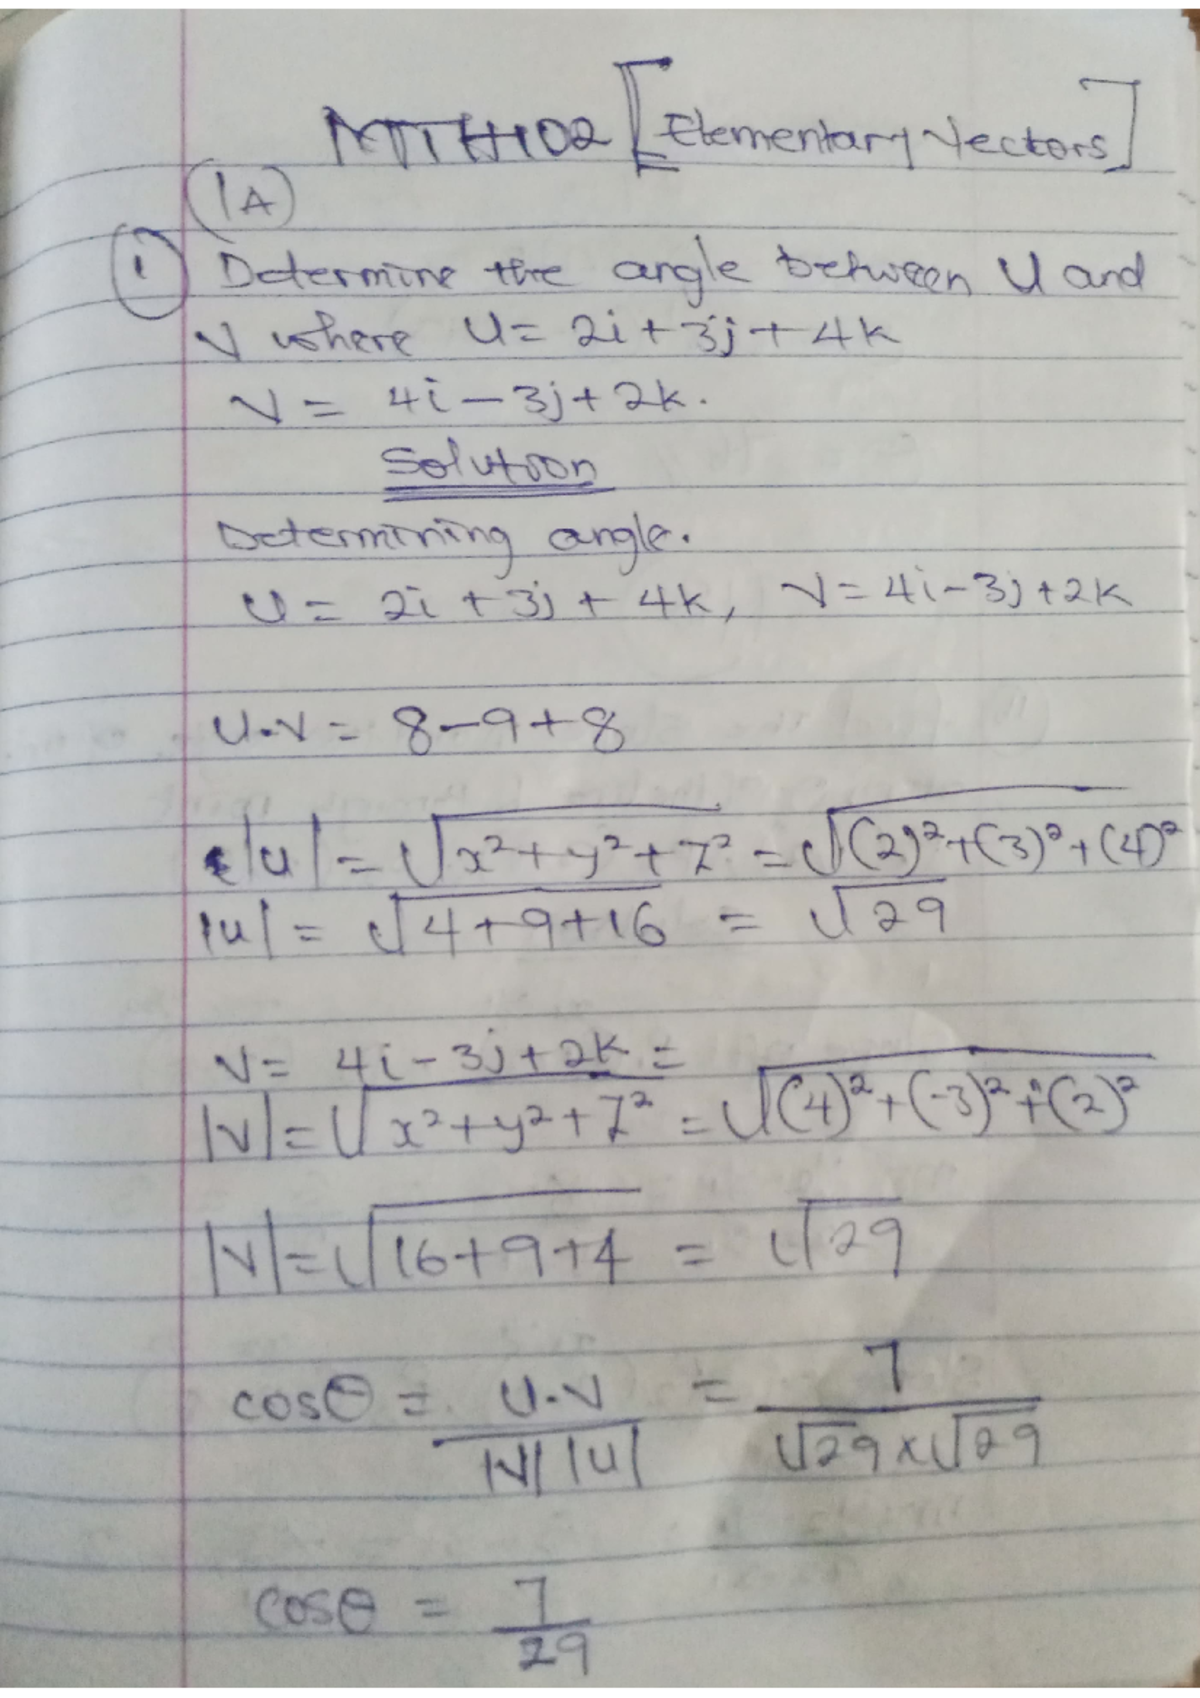 MTH102 [Elementary Vectors]
1A
1 Determine the angle between U and
V where U = 2i + 3j + 4k
V = 4i - 3j + 2k.
Solution
Determining angle.
U = 2i + 3j + 4k, V = 4i - 3j + 2k
U.V = 8 - 9 + 8
|U| = √x² + y² + z² = √(2)² + (3)² + (4)²
|U| = √4 + 9 + 16 = √29
V = 4i - 3j + 2k =
|V| = √x² + y² + z² = √(4)² + (-3)² + (2)²
|V| = √16 + 9 + 4 = √29
cosθ = U.V / |V| |U| = 7 / √29 × √29
cosθ = 7 / 29